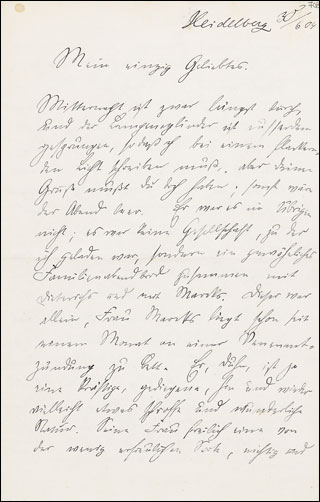 Heidelberg 30/6.04
Mein einzig Geliebtes.
Mitternacht ist zwar längst durch,
und der Lampenzylinder ist ausserdem
gesprungen, sodaß ich bei einem flackern-
den Licht schreiben muß, aber deinen
Gruß mußt du doch haben, sonst wär
der Abend leer. Er war es im Übrigen
nicht; es war keine Gesellschaft, zu der
ich geladen war, sondern ein gewöhnliches
Familienabendbrod zusammen mit
Dieterichs und mit Marcks. Dieser war
allein, Frau Marcks liegt schon seit
einem Monat an einer Venenent-
zündung zu Bett. Er, Duhn, ist ja
eine kräftige, gediegene, hin und wieder
vielleicht etwas schroffe und wunderliche
Natur. Seine Frau freilich eine von
der wenig erfreulichen Sorte, nichtig und